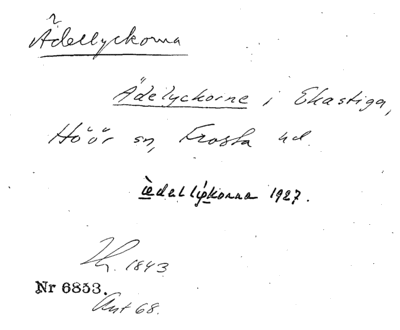 Ädellyckorna
Ädelyckorne i Ekastiga,
Höör sn, Frosta hd.
ædellykonna 1927.
1843
Nr 6853.
Ant 68.